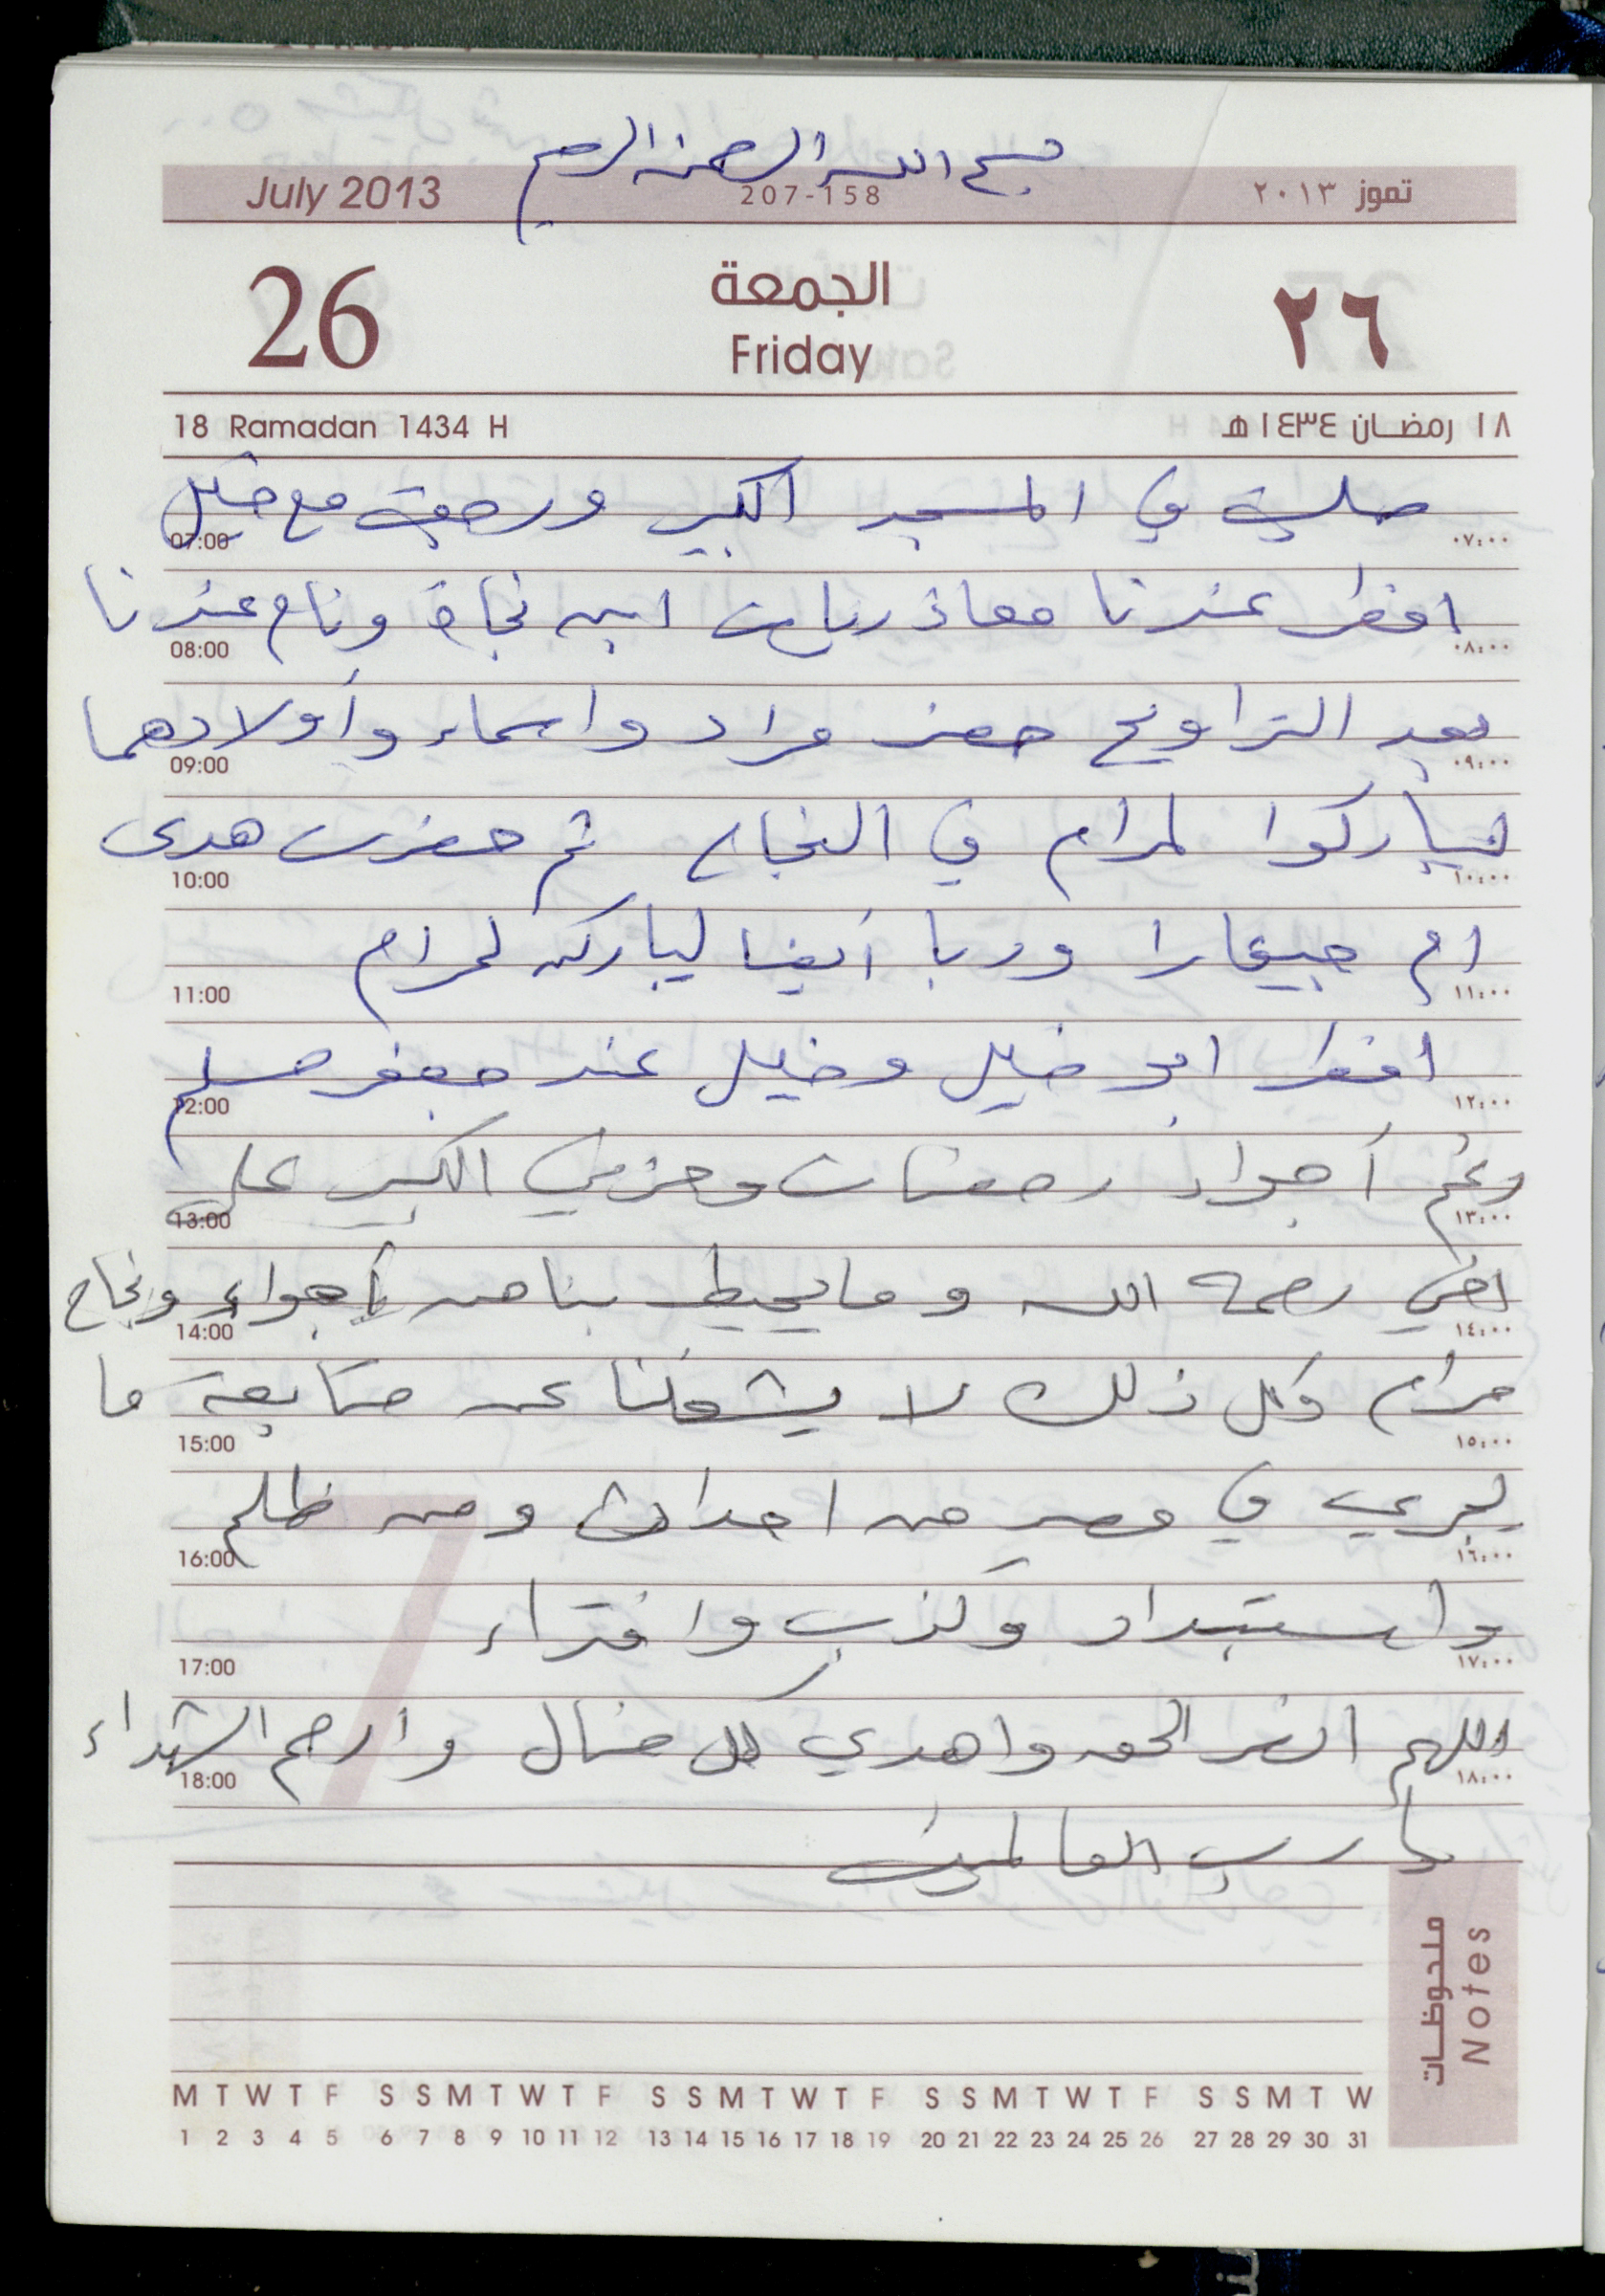 بسم الله الرحمن الرحيم
July 2013 207-158 تموز ٢٠١٣
26 الجمعة ٢٦
Friday
18 Ramadan 1434 H ١٨ رمضـان ١٤٣٤هـ
صليت في المسجد الكبير ورجعت مع خليل
07:00 ٠٧:٠٠
افطر عندنا معاذ ابن نجاة ونام عندنا
08:00 ٠٨:٠٠
بعد التراويح حضر مراد واسماء وأولادهما
09:00 ٠٩:٠٠
ليباركوا لمرام في النجاح ثم حضرت هدى
10:00 ١٠:٠٠
ام جيفارا وربا أيضا ليباركن لمرام
11:00 ١١:٠٠
افطر ابو خليل وخليل عند جعفر مسلم
12:00 ١٢:٠٠
رغم أجواء رمضان وحزني الكبير على
13:00 ١٣:٠٠
اخي رحمه الله وما يحيط بنا من أجواء ونجاح
14:00 ١٤:٠٠
مرام وكل ذلك لا يشغلنا عن متابعة ما
15:00 ١٥:٠٠
يجري في مصر من احداث ومن ظلم
16:00 ١٦:٠٠
واستبداد وكذب وافتراء
17:00 ١٧:٠٠
اللهم انصر الحق واهدي كل ضال وارحم الشهداء
18:00 ١٨:٠٠
يا رب العالمين
ملحوظـات
Notes
M T W T F S S M T W T F S S M T W T F S S M T W T F S S M T W
1 2 3 4 5 6 7 8 9 10 11 12 13 14 15 16 17 18 19 20 21 22 23 24 25 26 27 28 29 30 31